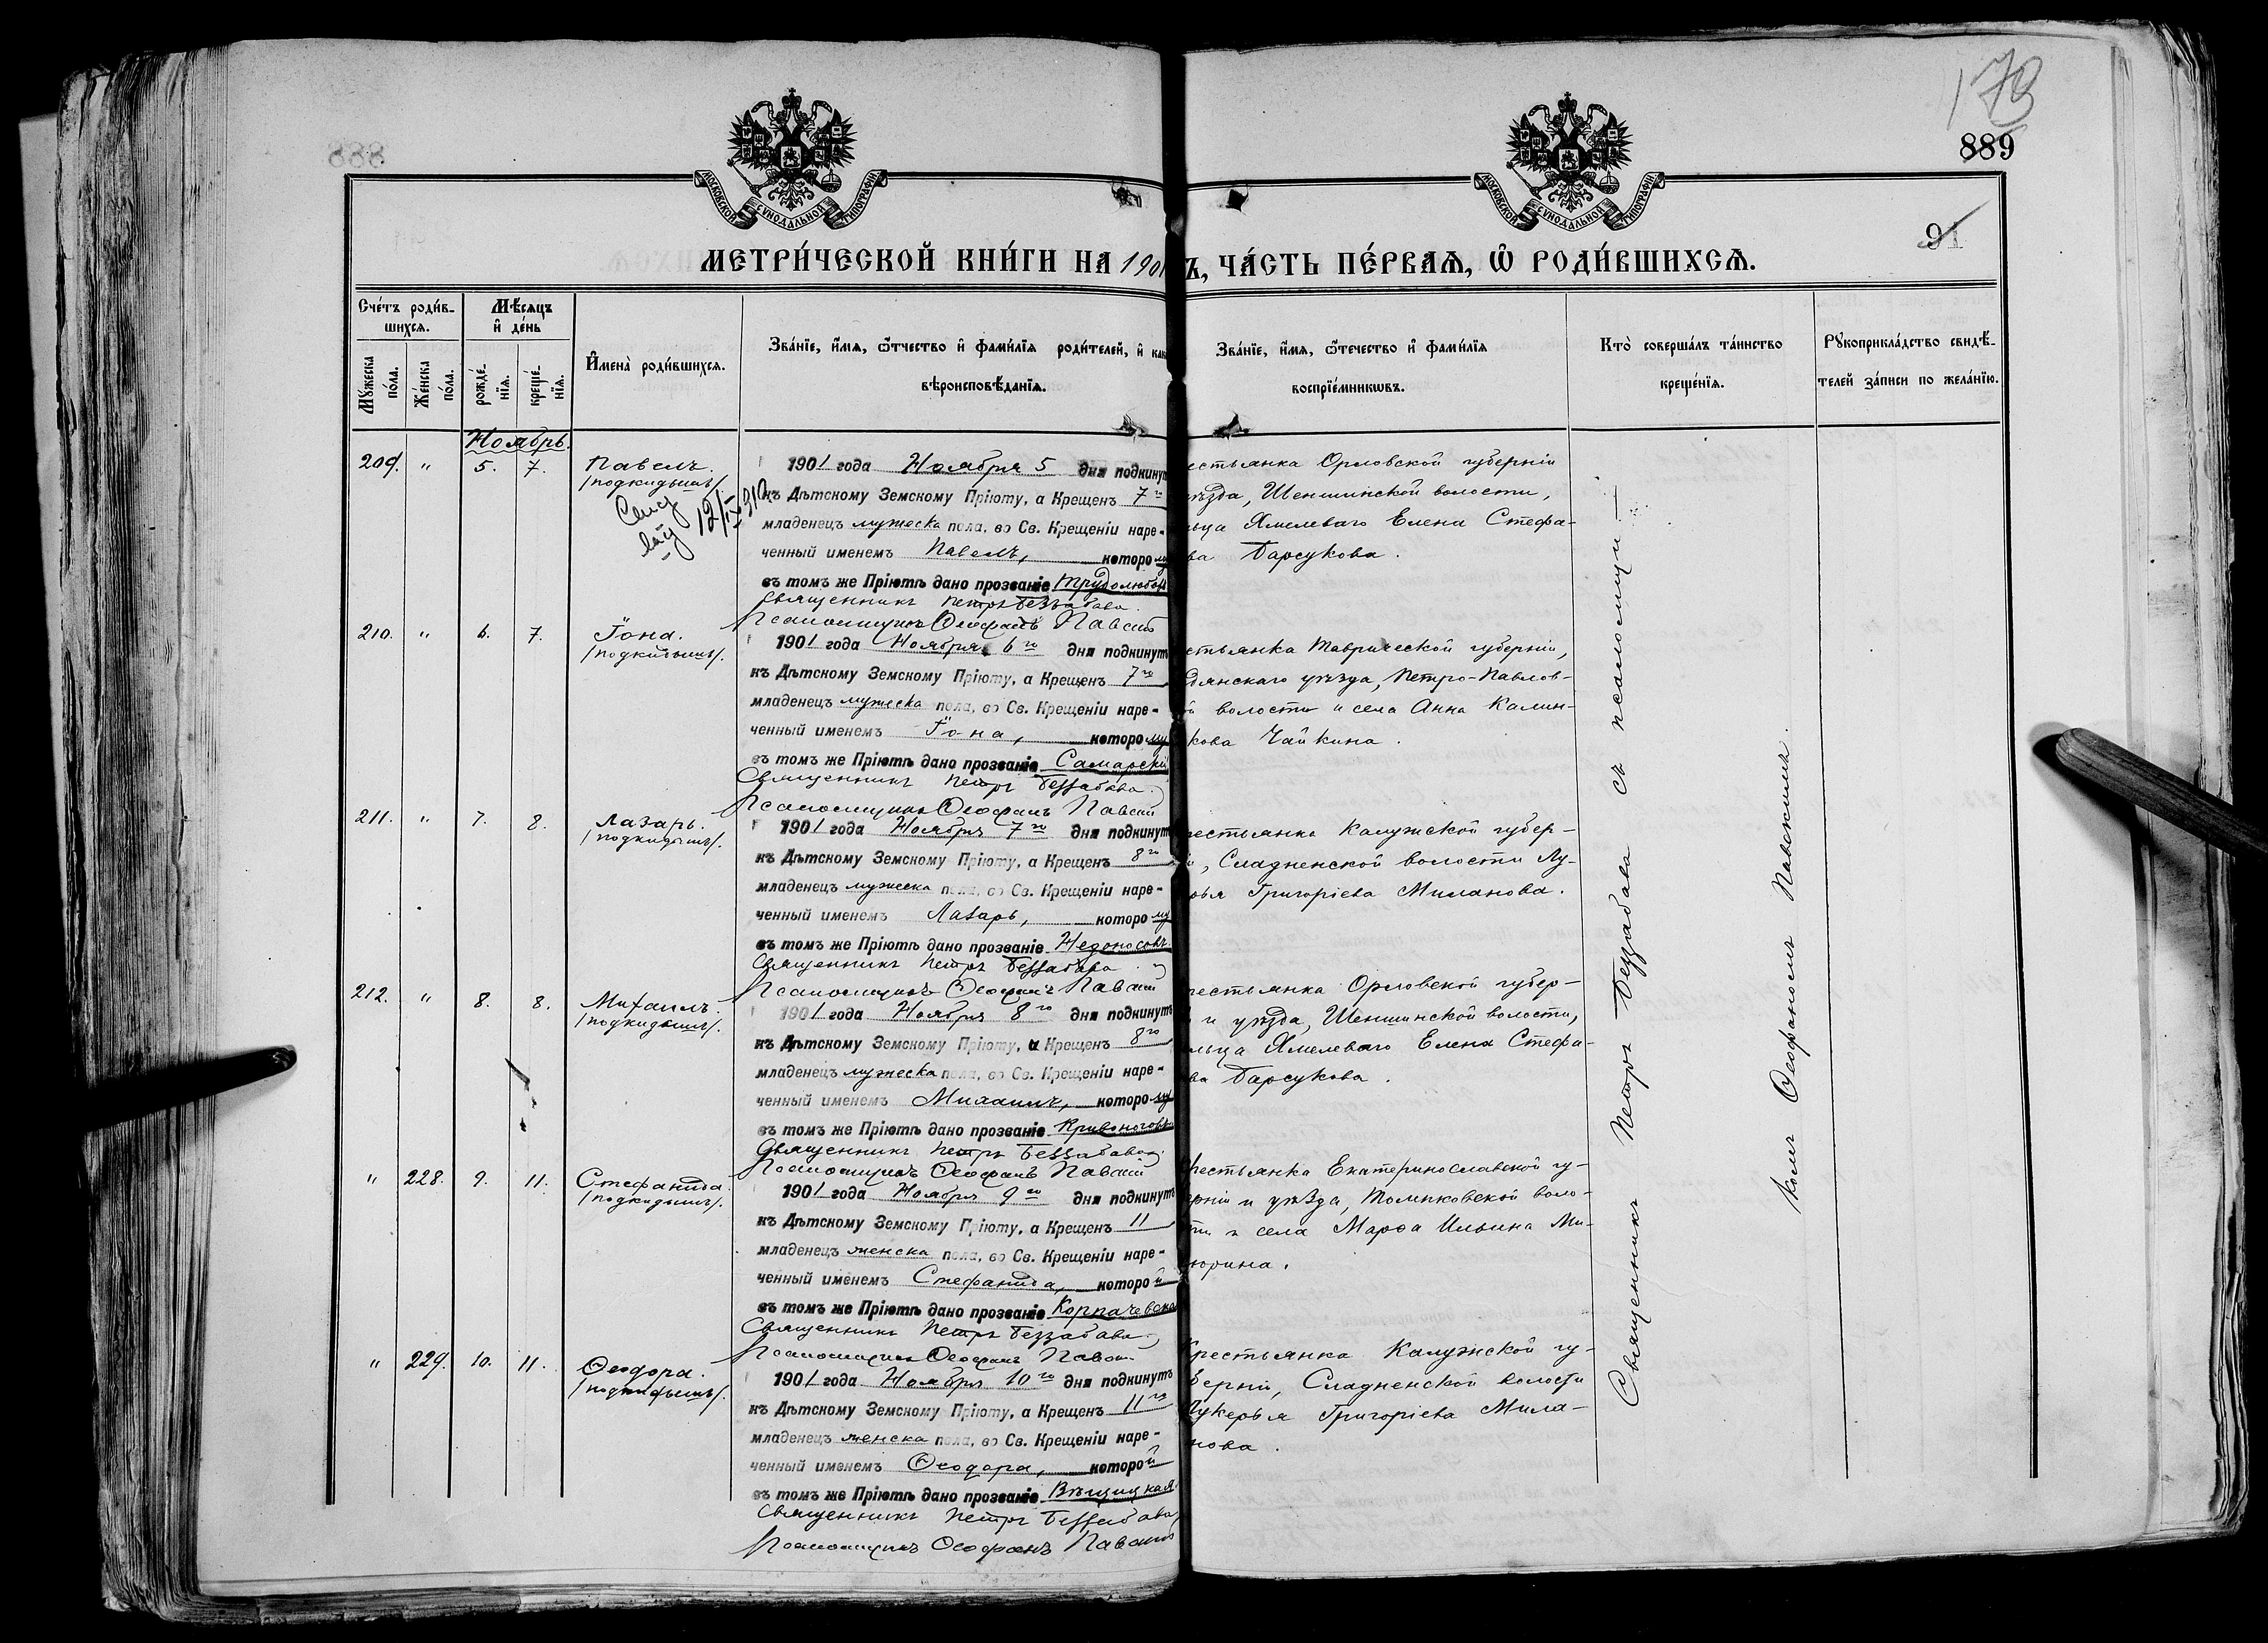 178
888
889
91
МОСКОВСКОЙ СѴНОДАЛЬНОЙ ТИПОГРАФІИ
МОСКОВСКОЙ СѴНОДАЛЬНОЙ ТИПОГРАФІИ
МЕТРИ́ЧЕСКОЙ КНИ́ГИ НА 1901
Ъ, ЧА́СТЬ ПЕ́РВАѦ, Ѡ҆ РОДИ́ВШИХСѦ.
Сче́тъ роди́в-
шихсѧ.
Мѣ́сѧцъ
и҆ де́нь
Мꙋ́жеска
по́ла.
Же́нска
по́ла.
рожде́-
нїѧ.
креще́-
нїѧ.
И҆мена̀ роди́вшихсѧ.
Зва́нїе, и҆́мѧ, ѻ҆́тчество и҆ фами́лїѧ роди́телей, и҆ как
вѣроисповѣ́данїѧ.
Зва́нїе, и҆́мѧ, ѻ҆те́чество и҆ фами́лїѧ
воспрїе́мникѡвъ.
Кто̀ соверша́лъ та́инство
креще́нїѧ.
Рꙋкоприкла́дство свидѣ́-
телей за́писи по жела́нїю.
Ноябрь.
209. " 5. 7. Павелъ.
/подкидышъ/
1901 года Ноября 5 дня подкинут
къ Дѣтскому Земскому Пріюту, а Крещенъ 7го
младенецъ мужеска пола, во Св. Крещеніи наре-
ченный именемъ Павелъ, которому
въ томъ же Пріютѣ дано прозваніе Трудолюбов
Священникъ Петръ Беззабава.
Псаломщикъ Ѳеофанъ Павскій
естьянка Орловской губерніи
уѣзда, Шеншинской волости,
льца Хмелеваго Елена Стефа-
ва Барсукова.
210. " 6. 7. Іона.
/подкидышъ/.
1901 года Ноября 6го дня подкинутъ
къ Дѣтскому Земскому Пріюту, а Крещенъ 7го
младенецъ мужеска пола, во Св. Крещеніи наре-
ченный именемъ Іона, которому
въ томъ же Пріютѣ дано прозваніе Самарскій
Священникъ Петръ Беззабава.
Псаломщикъ Ѳеофанъ Павскій
стьянка Таврической губерніи,
дянскаго уѣзда, Петро-Павлов-
й волости и села Анна Калин-
кова Чайкина.
211. " 7. 8. Лазарь.
/подкидышъ/.
1901 года Ноября 7го дня подкинутъ
къ Дѣтскому Земскому Пріюту, а Крещенъ 8го
младенецъ мужеска пола, во Св. Крещеніи наре-
ченный именемъ Лазарь, которому
въ томъ же Пріютѣ дано прозваніе Недоносовъ.
Священникъ Петръ Беззабава
Псаломщикъ Ѳеофанъ Павскій
рестьянка Калужской губер-
и, Сладненской волости Лу-
рья Григоріева Миланова.
212. " 8. 8. Михаилъ.
/подкидышъ/.
1901 года Ноября 8го дня подкинутъ
къ Дѣтскому Земскому Пріюту, а Крещенъ 8го
младенецъ мужеска пола, во Св. Крещеніи наре-
ченный именемъ Михаилъ, которому
въ томъ же Пріютѣ дано прозваніе Кривоноговъ
Священникъ Петръ Беззабава.
Псаломщикъ Ѳеофанъ Павскій
рестьянка Орловской губер-
и и уѣзда, Шеншинской волости,
льца Хмелеваго Елена Стефа-
ва Барсукова.
" 228. 9. 11. Стефанида.
/подкидышъ/.
1901 года Ноября 9го дня подкинутъ
къ Дѣтскому Земскому Пріюту, а Крещенъ 11
младенецъ женска пола, во Св. Крещеніи наре-
ченный именемъ Стефанида, которой
въ томъ же Пріютѣ дано прозваніе Корпачевска
Священникъ Петръ Беззабава.
Псаломщикъ Ѳеофанъ Павскій
рестьянка Екатеринославской гу-
ерніи и уѣзда, Томаковской воло-
ти и села Марѳа Ильина Ми-
юрина.
" 229. 10. 11. Ѳеодора.
/подкидышъ/.
1901 года Ноября 10го дня подкинутъ
къ Дѣтскому Земскому Пріюту, а Крещенъ 11го
младенецъ женска пола, во Св. Крещеніи наре-
ченный именемъ Ѳеодора, которой
въ томъ же Пріютѣ дано прозваніе Вѣщицкая
Священникъ Петръ Беззабава
Псаломщикъ Ѳеофанъ Павскій
Крестьянка Калужской гу-
берніи, Сладненской волости
Лукерья Григоріева Мила-
нова.
Священникъ Петръ Беззабава съ псаломщи-
комъ Ѳеофаномъ Павскимъ.